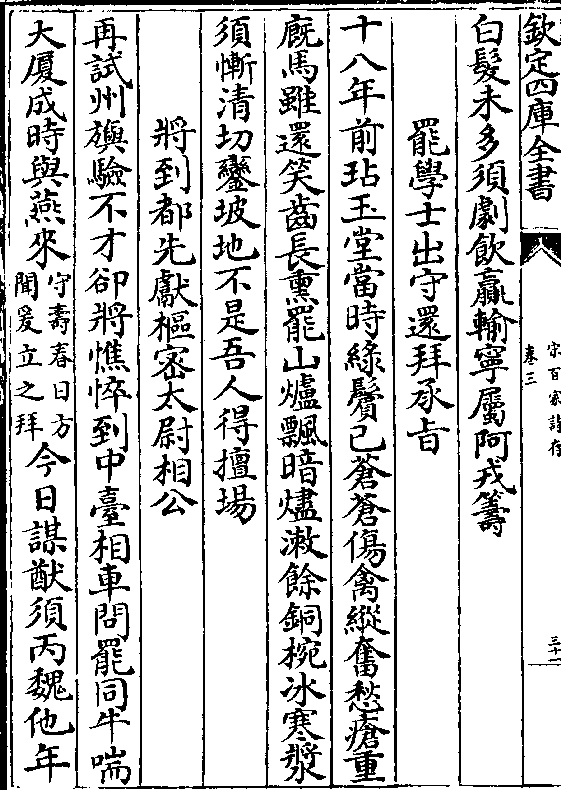 欽定四庫全書
宋百家詩存
卷三
三十一
白髮未多須劇飲贏輸寧屬阿戎籌
罷學士出守還拜承旨
十八年前玷玉堂當時綠鬢已蒼蒼傷禽縱奮愁瘡重
廐馬雖還笑齒長熏罷山爐飄暗燼漱餘銅椀冰寒漿
須慚清切鑾坡地不是吾人得擅場
將到都先獻樞密太尉相公
再試州旟驗不才卻將憔悴到中臺相車問罷同牛喘
大厦成時與燕來守壽春日方聞爰立之拜今日謀猷須丙魏他年